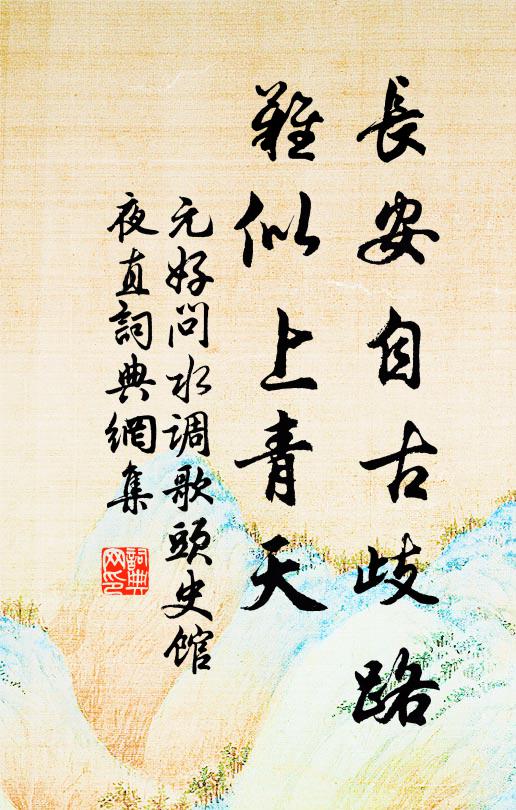 長安自古歧路
難似上青天
元好問水调歌頭史館
夜直詞典網集
詞典
网印